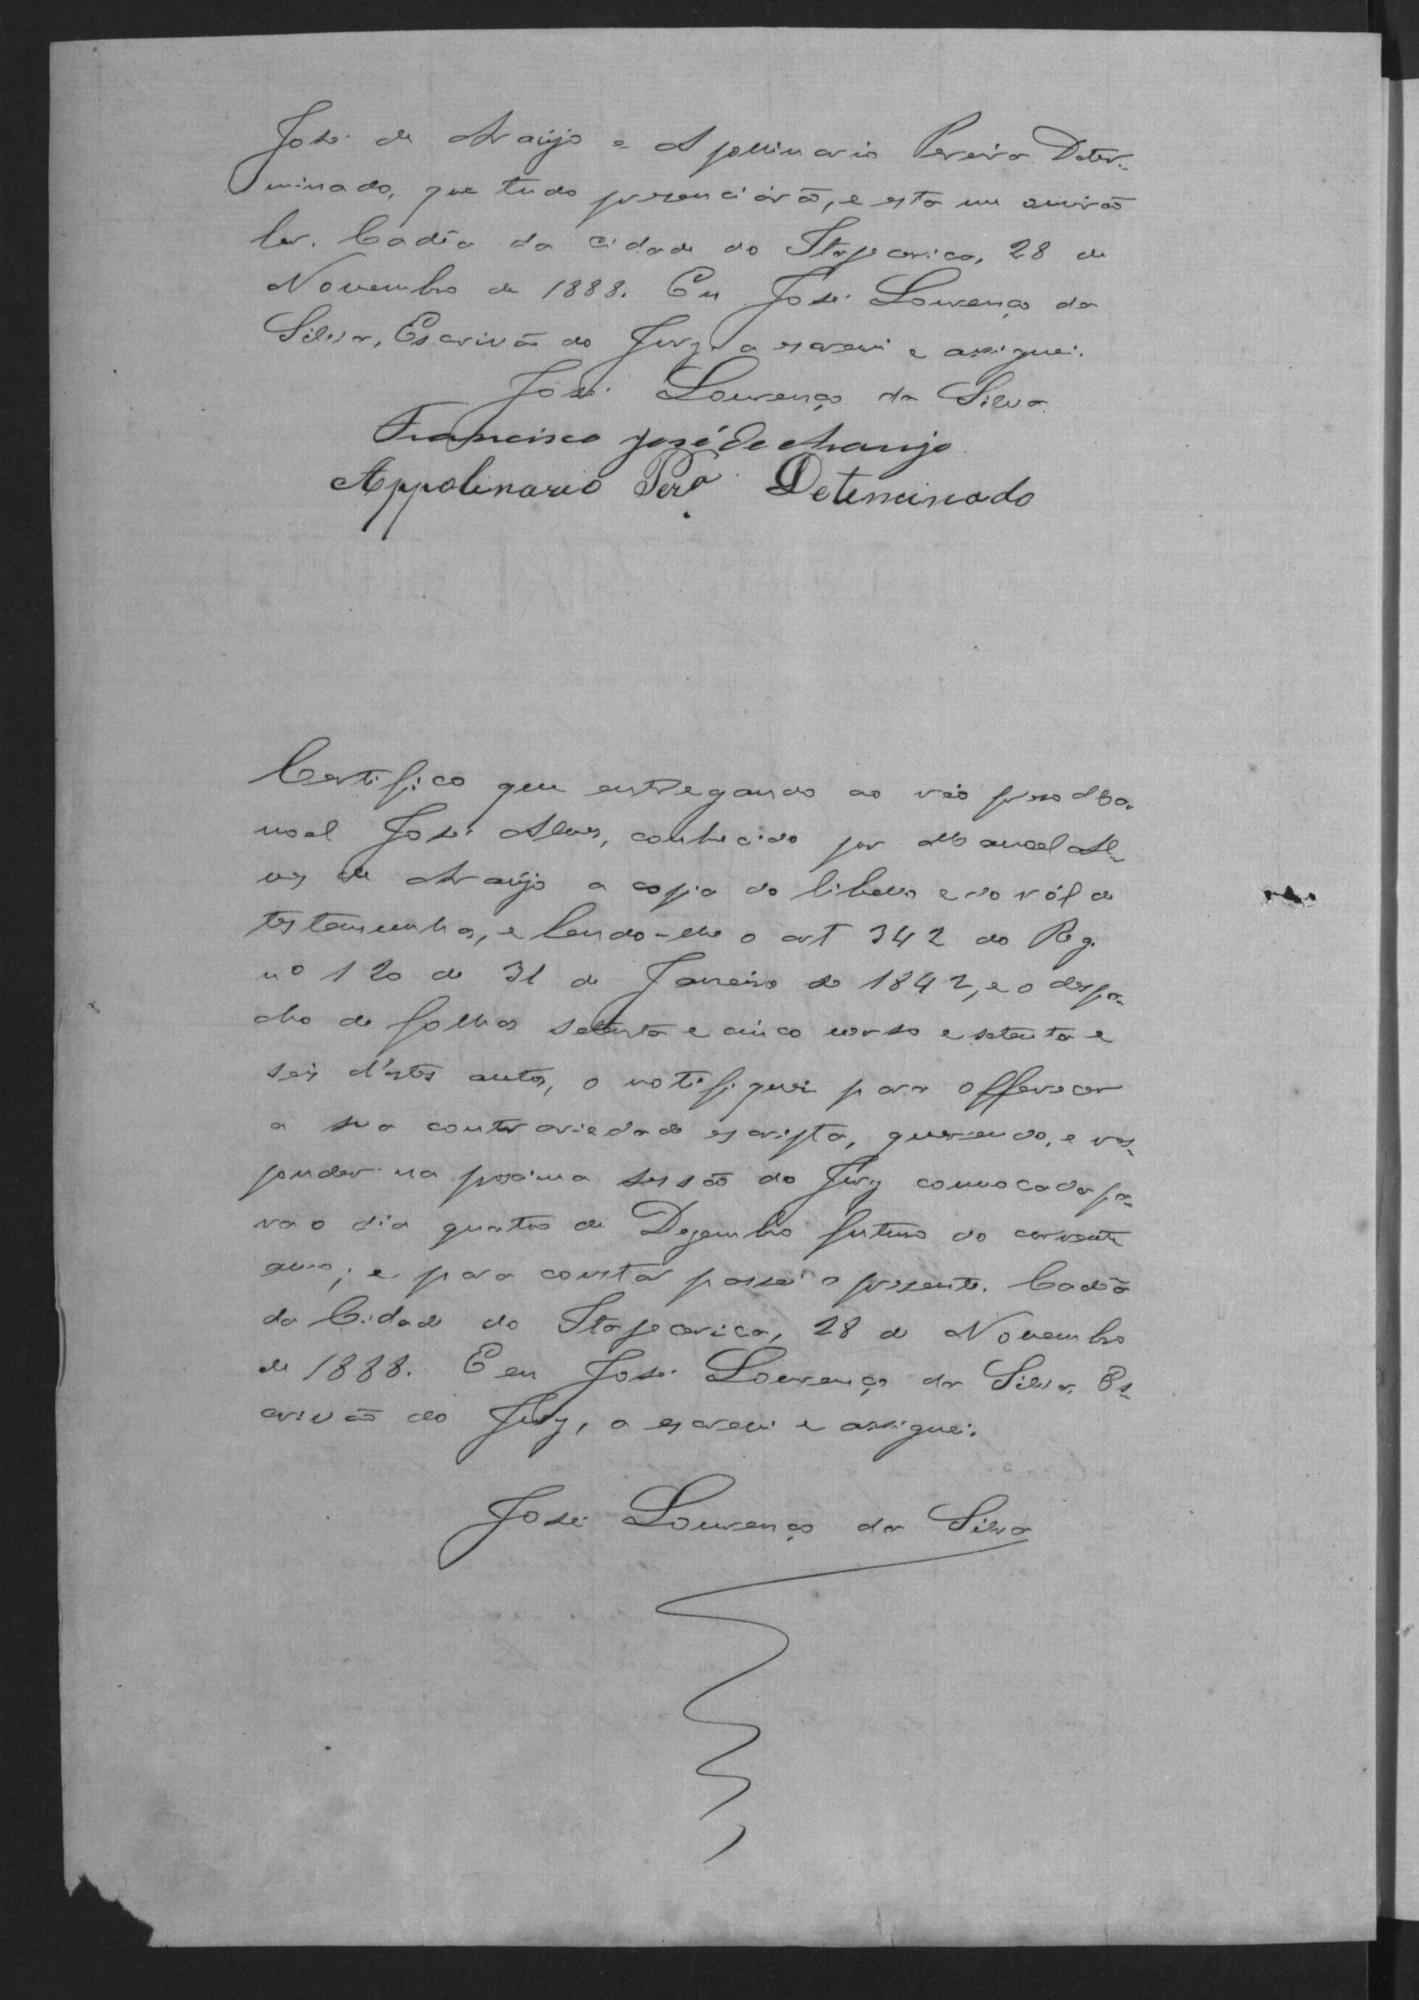 José de Araujo e Apollinario Pereira Deter-
minado, que tudo presenciárão, e esta me ouvirão
ler. Cadêa da cidade do Itapecerica, 28 de
Novembro de 1888. Eu José Lourenço da
Silva, Escrivão do Jury a escrevi e assignei.
José Lourenço da Silva
Francisco José de Araujo
Appolinario Perª Determinado
Certifico que entregando ao réo preso Ma-
noel José Alves, conhecido por Manoel Al-
ves de Araujo a copia do libello e do ról de
testemunhas, e lendo-lhe o art 342 do Reg.
nº 120 de 31 de Janeiro de 1842, e o despa-
cho de folhas setenta e cinco verso e setenta e
seis d'estes autos, o notifiquei para offerecer
a sua contrariedade escripta, querendo, e res-
ponder na proxima sessão do Jury convocada pa-
ra o dia quatro de Dezembro futuro do corrente
anno; e para constar passei o presente. Cadêa
da Cidade do Itapecerica, 28 de Novembro
de 1888. E eu José Lourenço da Silva, Es-
crivão do Jury, o escrevi e assignei.
José Lourenço da Silva